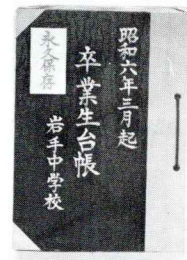 昭和六年三月起
卒業生台帳
岩手中学校
永久保存